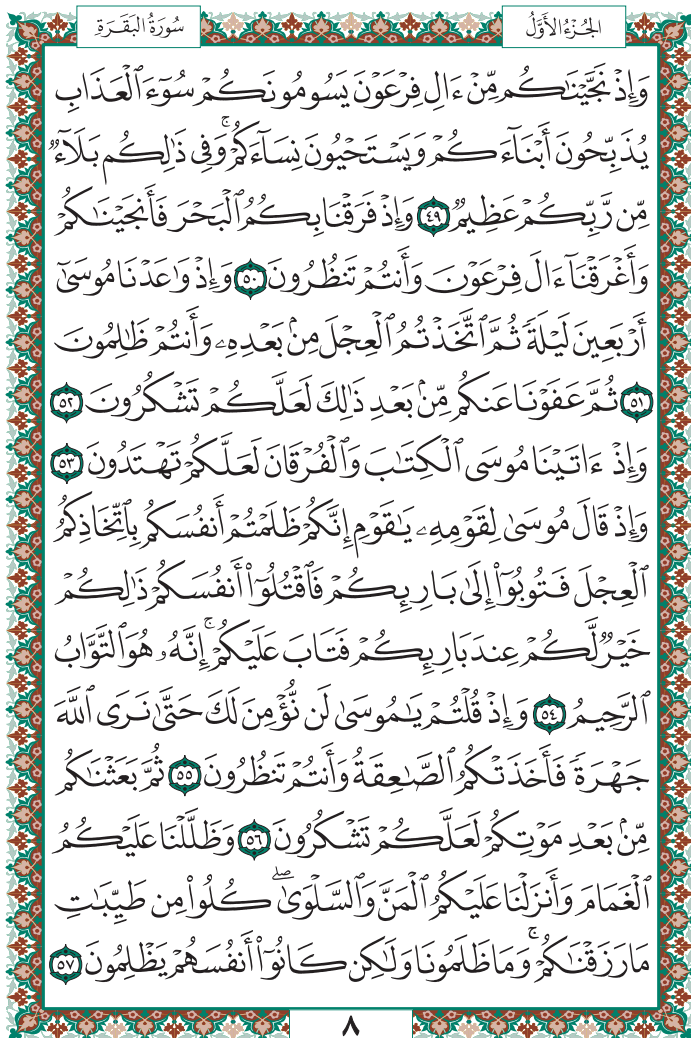 سُورَةُ البَقَرَةِ الجُزْءُ الأَوَّلُ
وَإِذْ نَجَّيْنَٰكُم مِّنْ ءَالِ فِرْعَوْنَ يَسُومُونَكُمْ سُوٓءَ ٱلْعَذَابِ
يُذَبِّحُونَ أَبْنَآءَكُمْ وَيَسْتَحْيُونَ نِسَآءَكُمْ ۚ وَفِى ذَٰلِكُم بَلَآءٌ
مِّن رَّبِّكُمْ عَظِيمٌ ٤٩ وَإِذْ فَرَقْنَا بِكُمُ ٱلْبَحْرَ فَأَنجَيْنَٰكُمْ
وَأَغْرَقْنَآ ءَالَ فِرْعَوْنَ وَأَنتُمْ تَنظُرُونَ ٥٠ وَإِذْ وَٰعَدْنَا مُوسَىٰٓ
أَرْبَعِينَ لَيْلَةً ثُمَّ ٱتَّخَذْتُمُ ٱلْعِجْلَ مِنۢ بَعْدِهِۦ وَأَنتُمْ ظَٰلِمُونَ
٥١ ثُمَّ عَفَوْنَا عَنكُم مِّنۢ بَعْدِ ذَٰلِكَ لَعَلَّكُمْ تَشْكُرُونَ ٥٢
وَإِذْ ءَاتَيْنَا مُوسَى ٱلْكِتَٰبَ وَٱلْفُرْقَانَ لَعَلَّكُمْ تَهْتَدُونَ ٥٣
وَإِذْ قَالَ مُوسَىٰ لِقَوْمِهِۦ يَٰقَوْمِ إِنَّكُمْ ظَلَمْتُمْ أَنفُسَكُم بِٱتِّخَاذِكُمُ
ٱلْعِجْلَ فَتُوبُوٓا۟ إِلَىٰ بَارِئِكُمْ فَٱقْتُلُوٓا۟ أَنفُسَكُمْ ذَٰلِكُمْ
خَيْرٌ لَّكُمْ عِندَ بَارِئِكُمْ فَتَابَ عَلَيْكُمْ ۚ إِنَّهُۥ هُوَ ٱلتَّوَّابُ
ٱلرَّحِيمُ ٥٤ وَإِذْ قُلْتُمْ يَٰمُوسَىٰ لَن نُّؤْمِنَ لَكَ حَتَّىٰ نَرَى ٱللَّهَ
جَهْرَةً فَأَخَذَتْكُمُ ٱلصَّٰعِقَةُ وَأَنتُمْ تَنظُرُونَ ٥٥ ثُمَّ بَعَثْنَٰكُم
مِّنۢ بَعْدِ مَوْتِكُمْ لَعَلَّكُمْ تَشْكُرُونَ ٥٦ وَظَلَّلْنَا عَلَيْكُمُ
ٱلْغَمَامَ وَأَنزَلْنَا عَلَيْكُمُ ٱلْمَنَّ وَٱلسَّلْوَىٰ ۖ كُلُوا۟ مِن طَيِّبَٰتِ
مَا رَزَقْنَٰكُمْ ۚ وَمَا ظَلَمُونَا وَلَٰكِن كَانُوٓا۟ أَنفُسَهُمْ يَظْلِمُونَ ٥٧
٨